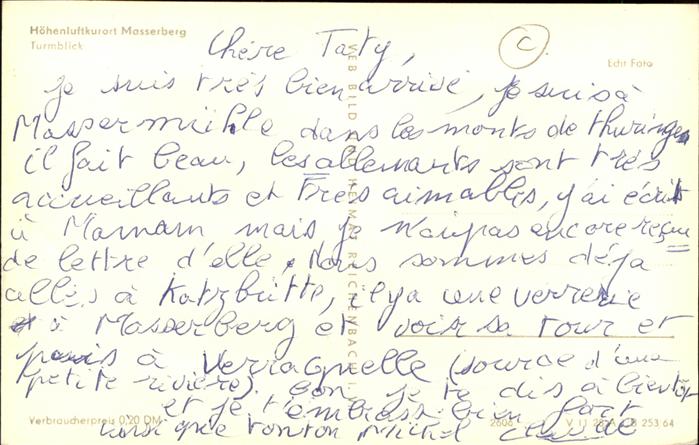 Höhenluftkurort Masserberg
Turmblick
C
Echt Foto
Chère Taty,
je suis très bien arrivé, je suis à
Massermühle dans les monts de thuringe
il fait beau, les allemants sont très
accueillants et très aimables, j'ai écrit
à Mamam mais je n'ai pas encore reçue
de lettre d'elle. Nous sommes déja
allés à Katzhütte, il y a une verrerie
à Masserberg et voir sa tour et
puis à Verraquelle (source d'une
petite rivière). Bon je te dis à bientôt
et je t'embrasse bien fort
ainsi que tonton Michel
VEB BILD HEIMAT REICHENBACH I. V.
Verbraucherpreis 0,20 DM
V 11 28 253 64